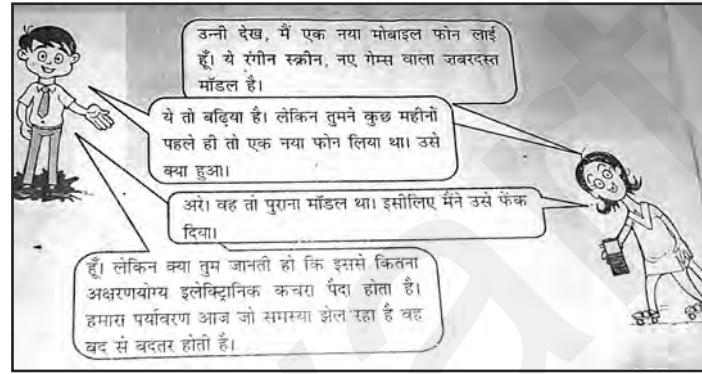 उन्नी देख, मैं एक नया मोबाइल फोन लाई
हूँ। ये रंगीन स्क्रीन, नए गेम्स वाला ज़बरदस्त
मॉडल है।
ये तो बढ़िया है। लेकिन तुमने कुछ महीनों
पहले ही तो एक नया फोन लिया था। उसे
क्या हुआ।
अरे। वह तो पुराना मॉडल था। इसीलिए मैंने उसे फेंक
दिया।
हूँ। लेकिन क्या तुम जानती हो कि इससे कितना
अक्षरणयोग्य इलेक्ट्रिानिक कचरा पैदा होता है।
हमारा पर्यावरण आज जो समस्या झेल रहा है वह
बद से बदतर होती है।